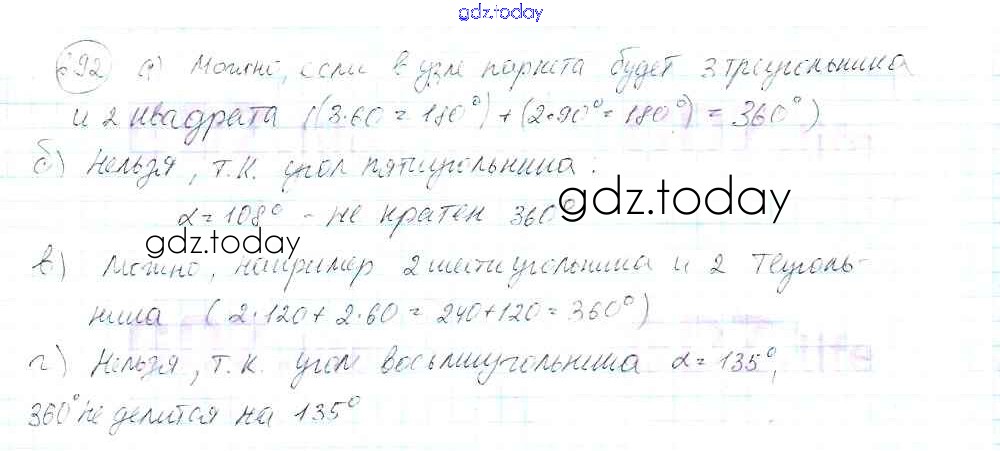 gdz.today
692 а) Можно, если в узле паркета будет 3 треугольника
и 2 квадрата ((3·60 = 180°) + (2·90° = 180°) = 360°)
б) Нельзя, т.к. угол пятиугольника:
α = 108° - не кратен 360°
gdz.today
gdz.today
в) Можно, например 2 шестиугольника и 2 теуголь-
ника (2·120 + 2·60 = 240 + 120 = 360°)
г) Нельзя, т.к. угол восьмиугольника α = 135°,
360° не делится на 135°